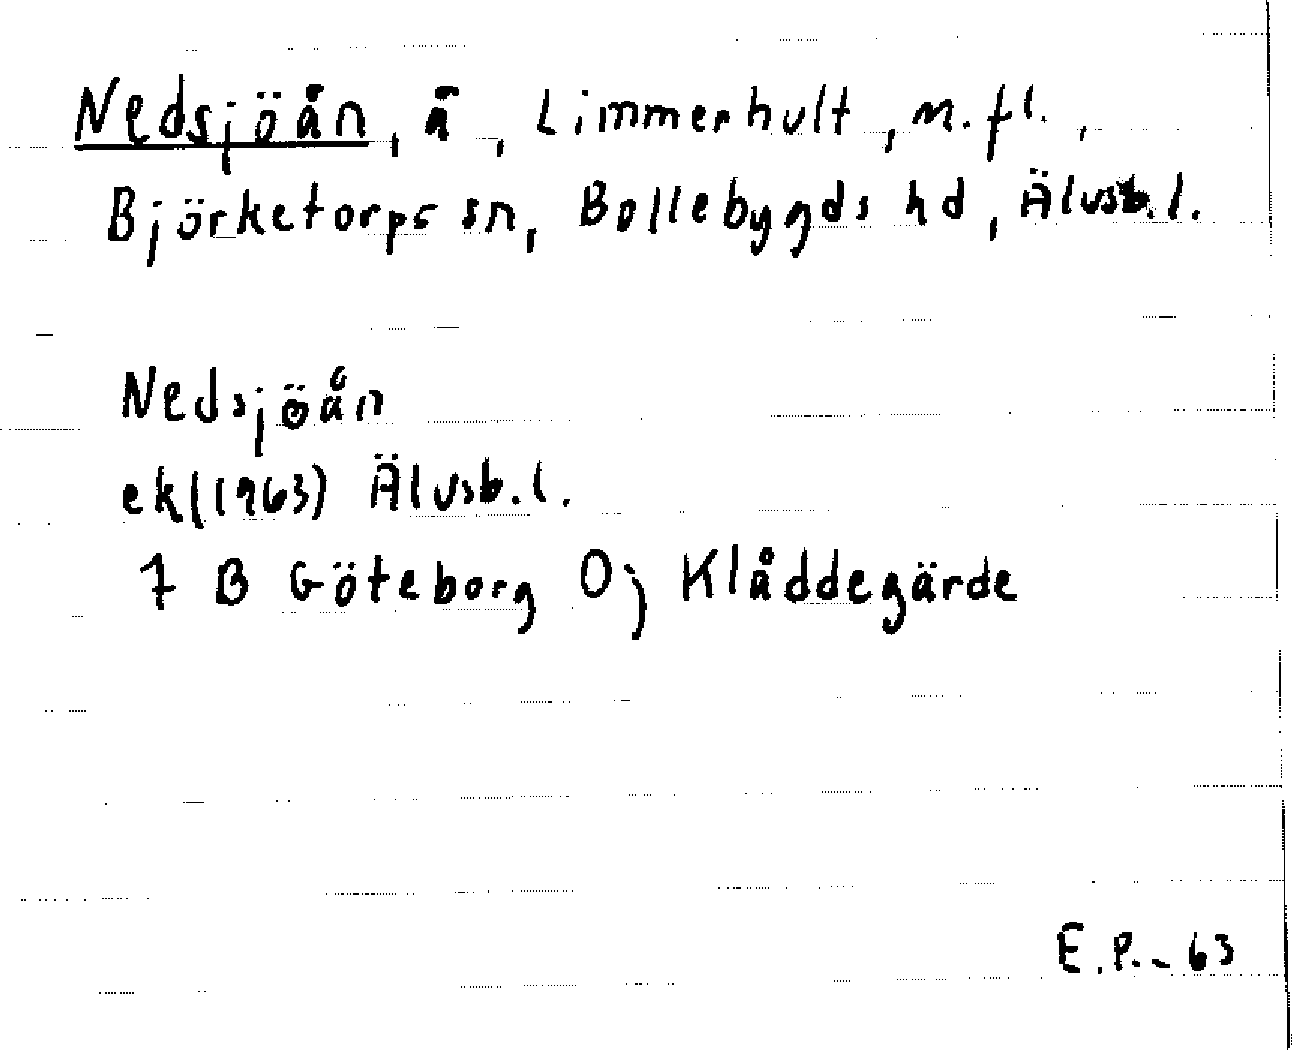 Nedsjöån, å, Limmerhult, m.fl.,
Björketorps sn, Bollebygds hd, Älvsb.l.
Nedsjöån
ek(1963) Älvsb.l.
7 B Göteborg 0j Klåddegärde
E.P.-63